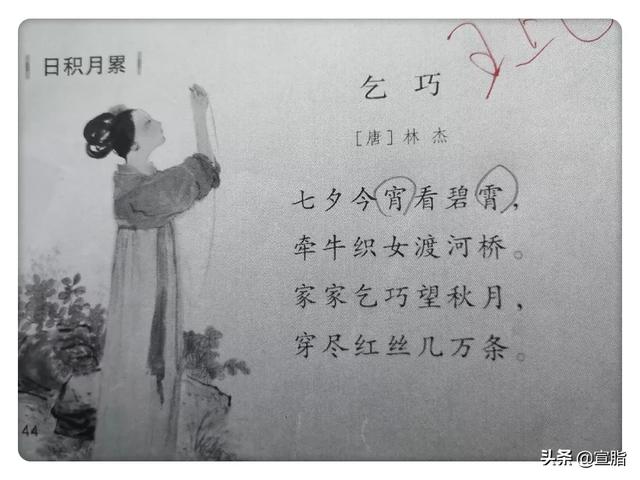 日积月累
乞 巧
［唐］林 杰
七夕今宵看碧霄，
牵牛织女渡河桥。
家家乞巧望秋月，
穿尽红丝几万条。
44
头条 @宣脂